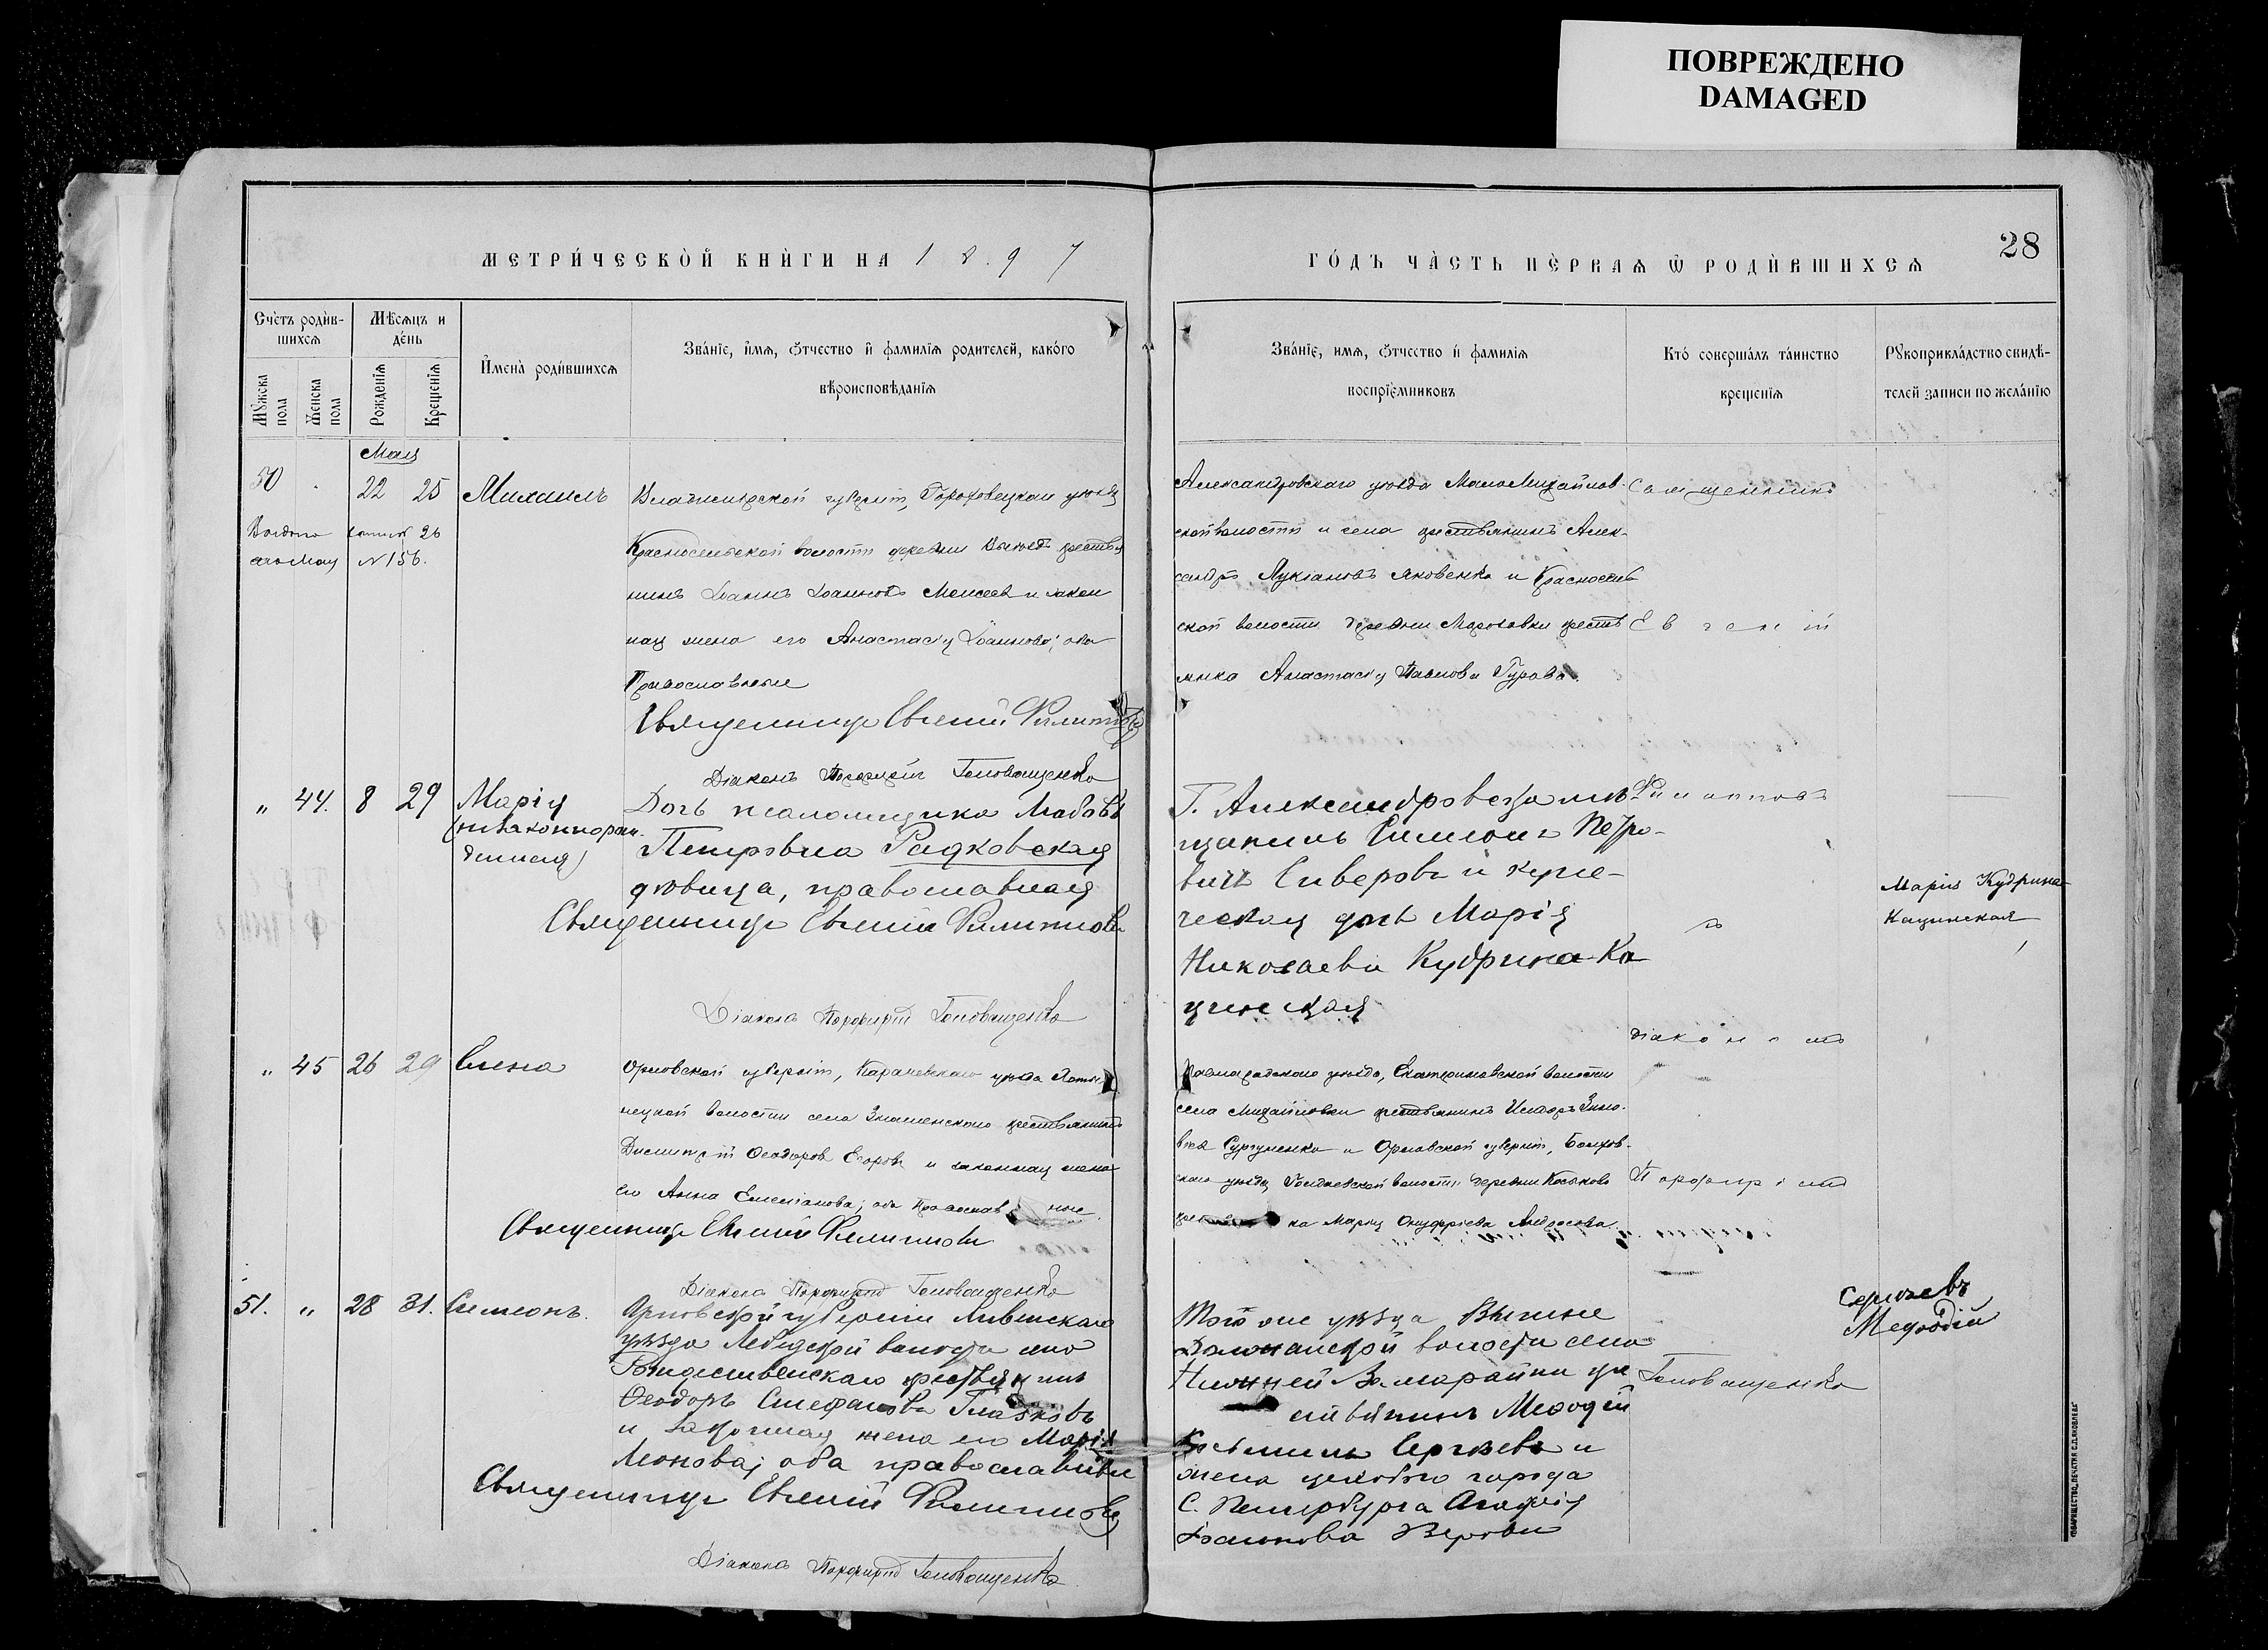 ПОВРЕЖДЕНО
DAMAGED
МЕТРИ́ЧЕСКОЙ КНИ́ГИ НА 1897
ГО́ДЪ ЧА́СТЬ ПЕ́РВАѦ Ѡ РОДИ́ВШИХСѦ
28
Сче́тъ роди́в-
шихсѧ
Мѣ́сѧцъ и
де́нь
Мꙋ́жска
пола
Же́нска
пола
Рожденїѧ
Крещенїѧ
И҆мена̀ роди́вшихсѧ
Зва́нїе, и҆́мѧ, ѻ҆́тчество и҆ фамилїѧ родителей, како́го
вѣроисповѣданїѧ
Зва́нїе, имѧ, ѻ҆́тчество и҆ фамилїѧ
воспрїе́мниковъ
Кто́ соверша́лъ та́инство
крещенїѧ
Рꙋкоприкла́дство свидѣ-
телей записи по жела́нїю
Мая
50
22 25
Михаилъ
Владимирской губерніи, Гороховецкаго уѣзда
Красносельской волости деревни крестья
нинъ Іоаннъ Іоанновъ Моисеев и закон
ная жена его Анастасія Іоаннова; оба
Православные
Священникъ Евгеній Филипповъ
Діаконъ Порфирій Головащенко
Выдана 26
Мая № 156.
Александровскаго уѣзда МалоМихайлов-
ской волости и села крестьянинъ Алек-
сандръ Лукіановъ Яковенко и Красносель
ской волости деревни крестья
нка Анастасія Павлова Гурова.
Священникъ
Евгеній
" 44. 8 29
Марія
(незаконнорож-
денная)
Дочь псаломщика Любовь
Петровна Радковская
дѣвица, православная
Священникъ Евгеній Филипповъ
Діаконъ Порфирій Головащенко
Г. Александровска мѣ-
щанинъ Симеонъ Петро-
вичъ Сиверовъ и купе-
ческая дочь Марія
Николаева Кудрина-Ка
цинская
Филиппов
ъ
Марія Кудрина-
Кацинская
" 45 26 29
Елена
Орловской губерніи, Карачевскаго уѣзда
нецкой волости села Знаменскаго крестьянинъ
Димитрій Ѳеодоров Егоров и законная жена
его Анна Емеліанова; оба Православные.
Священникъ Евгеній Филипповъ
Діаконъ Порфирій Головащенко
Павлоградскаго уѣзда, Екатериновской волости
села Михайловки крестьянинъ
Сургученко и Орловской губерніи, Болхов-
скаго уѣзда волости деревни
ка Марія Онуфріева Андросова
Діакономъ
Порфиріемъ
51. " 28 31.
Симеонъ.
Орловской губерніи Ливенскаго
уѣзда волости села
Рождественскаго крестьянинъ
Ѳеодоръ Стефановъ Глазковъ
и законная жена его Марія
Леонова; оба православные
Священникъ Евгеній Филипповъ
Діаконъ Порфирій Головащенко
Того же уѣзда Вышне
Должанской волости села
Нижней кре
стьянинъ Меѳодій
Сергѣевъ и
жена города
С. Петербурга Агафія
Іоаннова
Головащенко
Сергѣевъ
Меѳодій